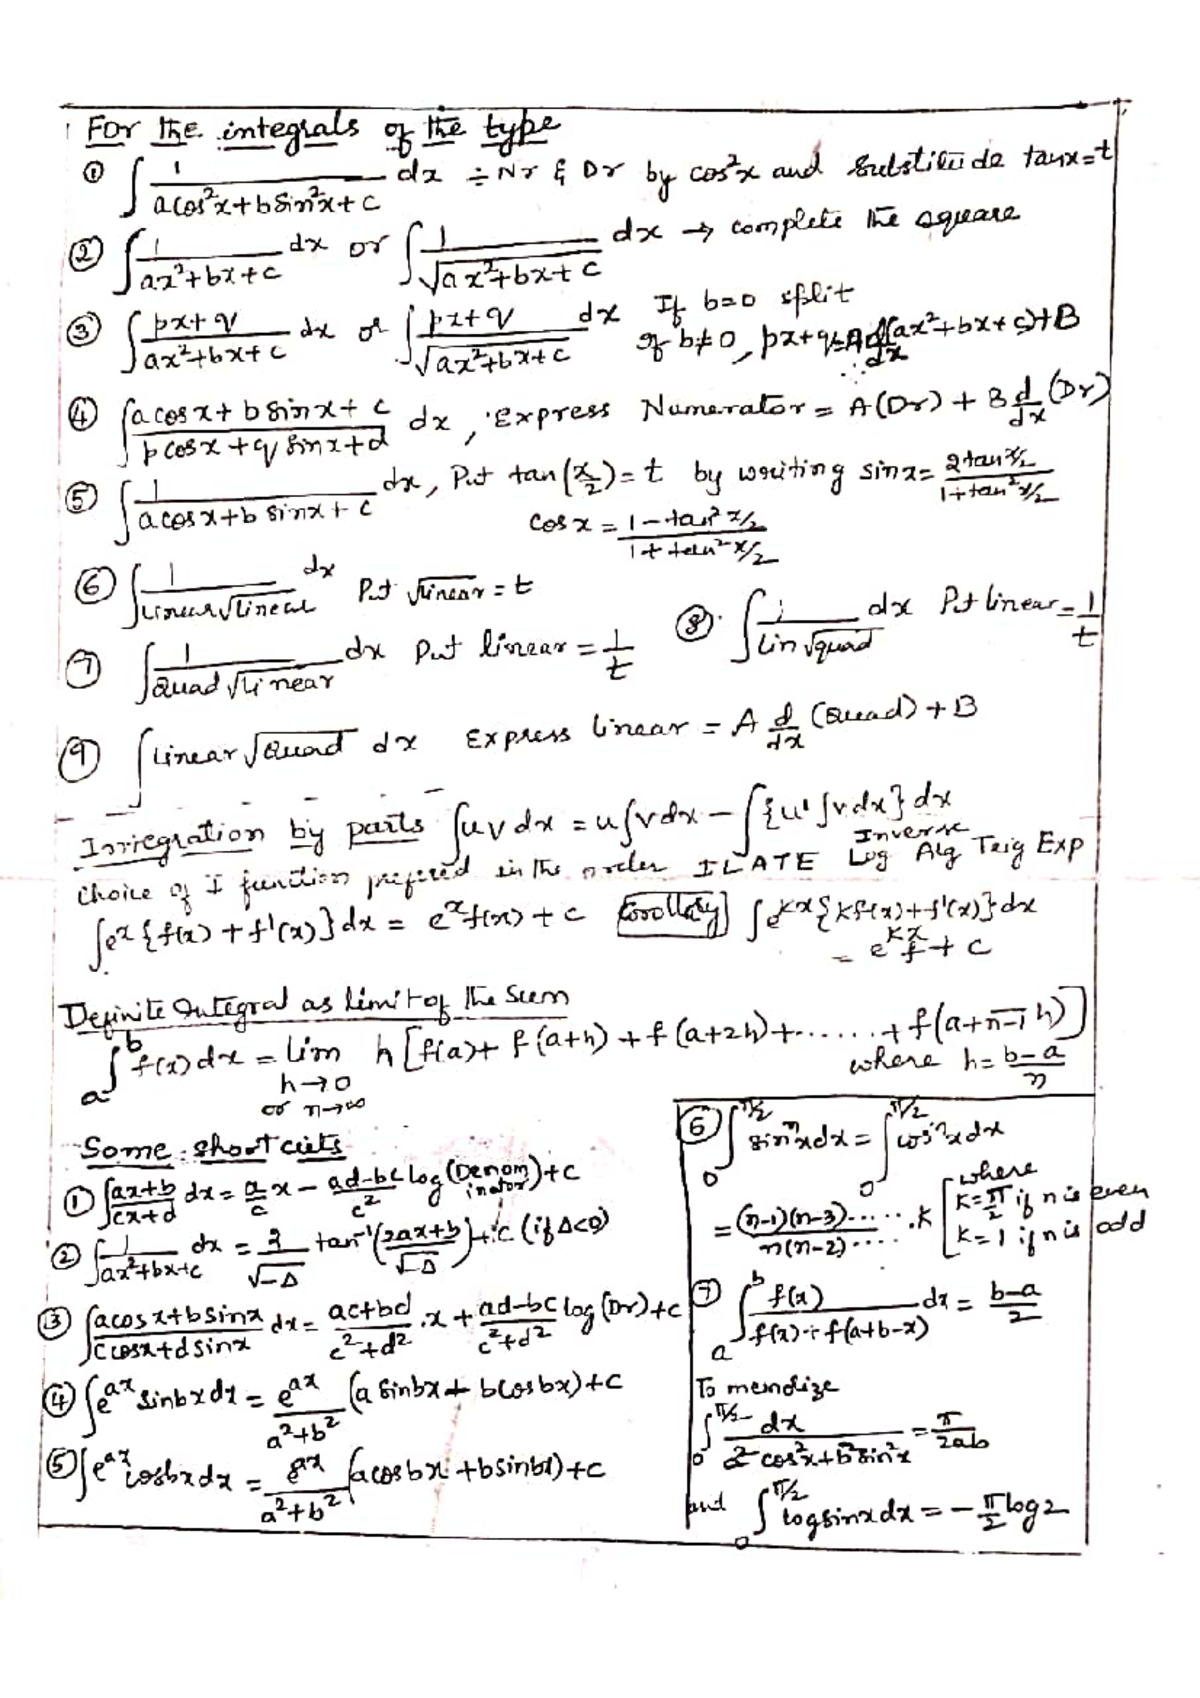 For the integrals of the type
① ∫ 1/(a cos²x + b sin²x + c) dx ÷ Nr & Dr by cos²x and substitute tanx = t
② ∫ 1/(ax²+bx+c) dx or ∫ 1/√(ax²+bx+c) dx → complete the square
③ ∫ (px+q)/(ax²+bx+c) dx or ∫ (px+q)/√(ax²+bx+c) dx If b=0 split
If b≠0, px+q = A d/dx (ax²+bx+c)+B
④ ∫ (a cosx + b sinx + c)/(p cosx + q sinx + d) dx, Express Numerator = A(Dr) + B d/dx (Dr)
⑤ ∫ 1/(a cosx + b sinx + c) dx, Put tan(x/2) = t by writing sinx = (2tan x/2)/(1+tan² x/2)
cosx = (1-tan² x/2)/(1+tan² x/2)
⑥ ∫ 1/(Linear√Linear) dx Put √Linear = t
⑦ ∫ 1/(Quad√Linear) dx Put linear = 1/t
⑧ ∫ 1/(Lin√quad) dx Put linear = 1/t
⑨ ∫ Linear√Quad dx Express linear = A d/dx (Quad) + B
Integration by parts ∫uv dx = u∫v dx − ∫{u'∫v dx} dx
Choice of I function prefered in the order ILATE Inverse Log Alg Trig Exp
∫eˣ{f(x) + f'(x)}dx = eˣf(x) + c Corollary ∫e^kx{kf(x)+f'(x)}dx
= e^kx f + c
Definite Integral as limit of the sum
∫ₐᵇ f(x)dx = lim h→0 or n→∞ h[f(a)+ f(a+h) + f(a+2h)+......+f(a+n̅-̅1̅ h)]
where h = (b-a)/n
Some shortcuts
① ∫ (ax+b)/(cx+d) dx = a/c x − (ad-bc)/c² log(Denominator)+c
② ∫ 1/(ax²+bx+c) dx = 2/√-Δ tan⁻¹((2ax+b)/√-Δ)+c (if Δ<0)
③ ∫ (a cosx+b sinx)/(c cosx+d sinx) dx = (ac+bd)/(c²+d²) .x + (ad-bc)/(c²+d²) log(Dr)+c
④ ∫e^ax sinbx dx = e^ax/(a²+b²) (a sinbx + b cosbx)+c
⑤ ∫e^ax cosbx dx = e^ax/(a²+b²) (a cosbx + b sinbx)+c
⑥ ∫₀^(π/2) sinⁿx dx = ∫₀^(π/2) cosⁿx dx
= (n-1)(n-3)....../n(n-2).... .K [where
K = π/2 if n is even
K = 1 if n is odd
⑦ ∫ₐᵇ f(x)/(f(x)+f(a+b-x)) dx = (b-a)/2
To memorize
∫₀^(π/2) dx/(a² cos²x+b² sin²x) = π/2ab
and ∫₀^(π/2) logsinx dx = − π/2 log2